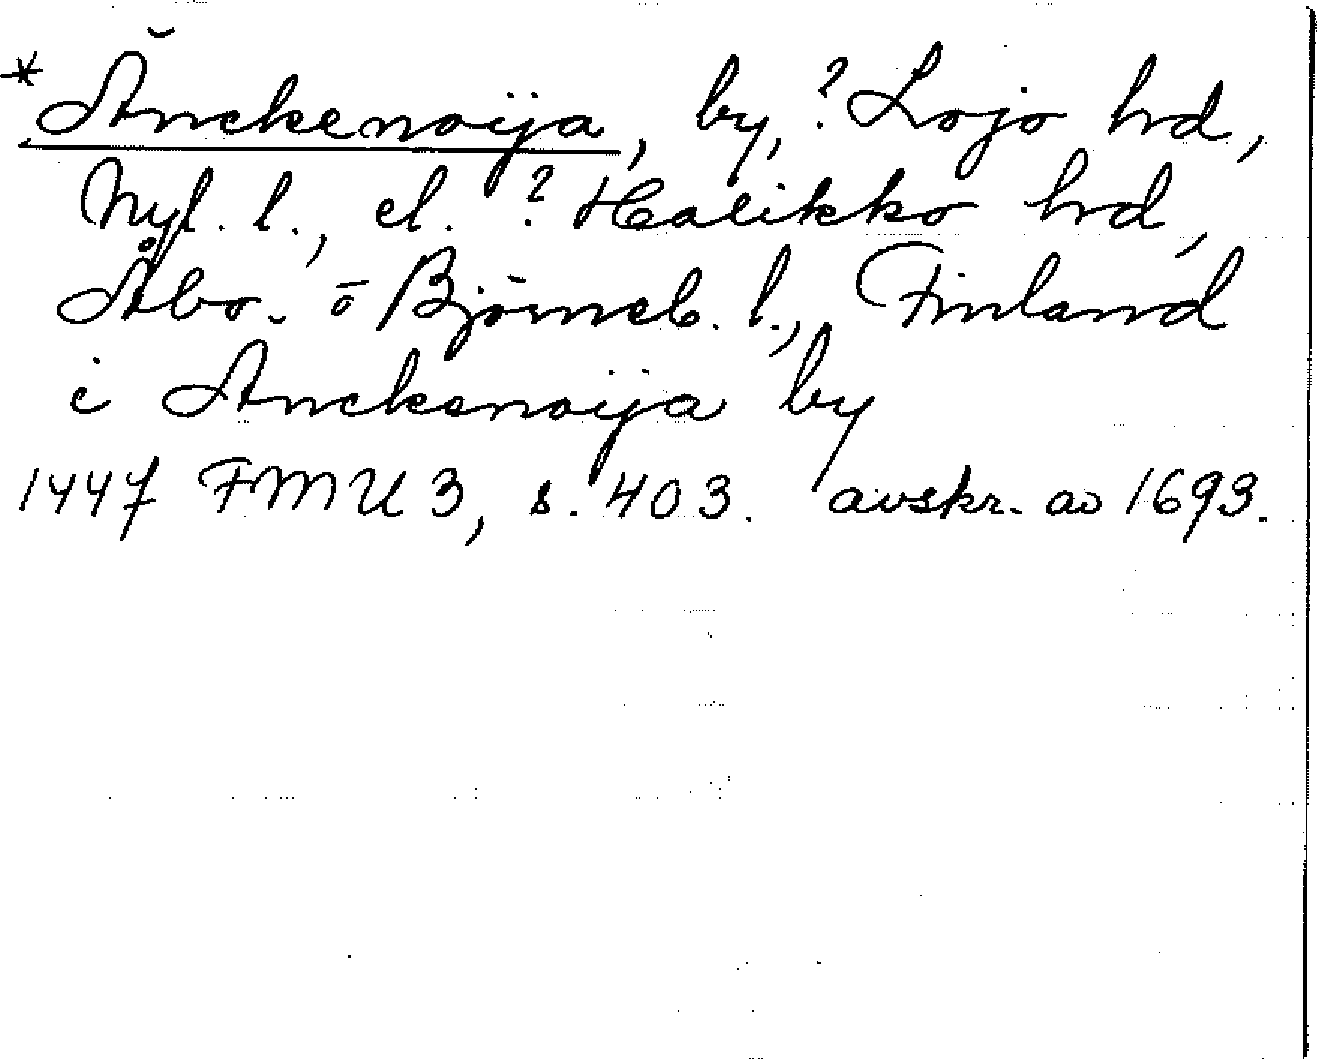 *Ănckenoija, by, ? Lojo hd,
Nyl. l., el. ? Halikko hd,
Åbo- o Björneb. l., Finland
i Anckenoija by
1447 FMU 3, s. 403. avskr. av 1693.